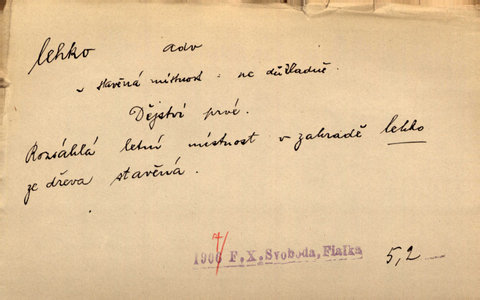 lehko adv
stavěná místnost : ne důkladně.
Dějství prvé.
Rozsáhlá letní místnost v zahradě lehko
ze dřeva stavěná.
1906 F. X. Svoboda, Fialka 5,2